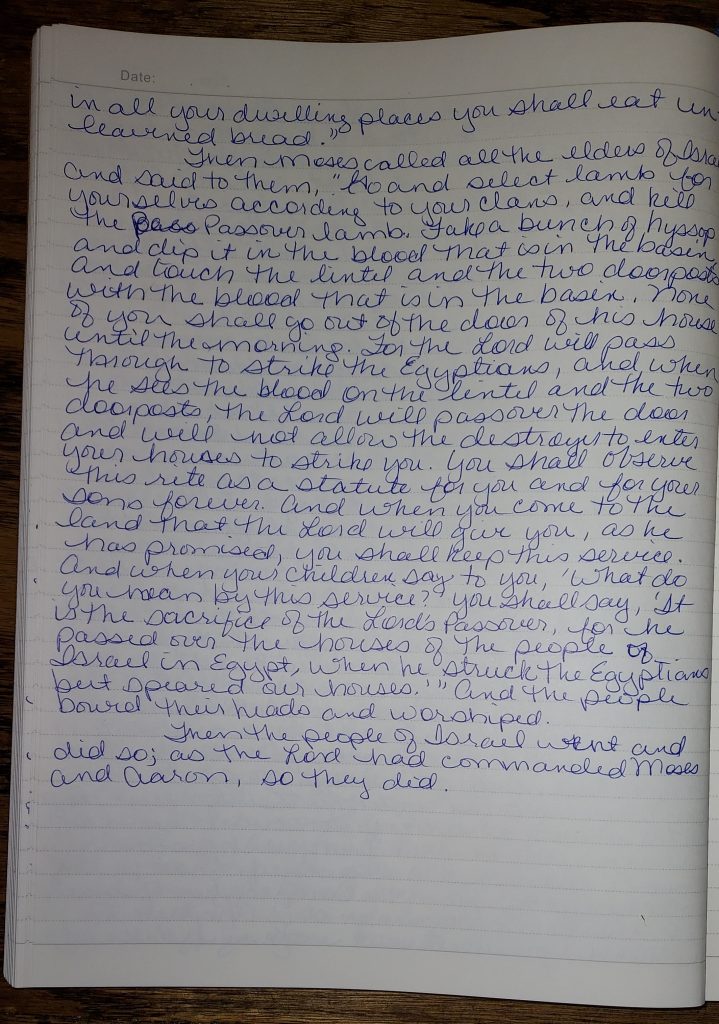 Date:
in all your dwelling places you shall eat un-
leavened bread."
Then Moses called all the elders of Israe
and said to them, "Go and select lamb for
yourselves according to your clans, and kill
the Pass Passover lamb. Take a bunch of hyssop
and dip it in the blood that is in the basin
and touch the lintel and the two doorposts
with the blood that is in the basin. None
of you shall go out of the door of his house
until the morning. For the Lord will pass
through to strike the Egyptians, and when
he sees the blood on the lintel and the two
doorposts, the Lord will passover the door
and will not allow the destroyer to enter
your houses to strike you. You shall observe
this rite as a statute for you and for your
sons forever. And when you come to the
land that the Lord will give you, as he
has promised, you shall keep this service.
And when your children say to you, 'What do
you mean by this service?' you shall say, 'It
is the sacrifice of the Lord's Passover, for he
passed over the houses of the people of
Israel in Egypt, when he struck the Egyptians
but speared our houses.'" And the people
bowed their heads and worshiped.
Then the people of Israel went and
did so; as the Lord had commanded Moses
and Aaron, so they did.